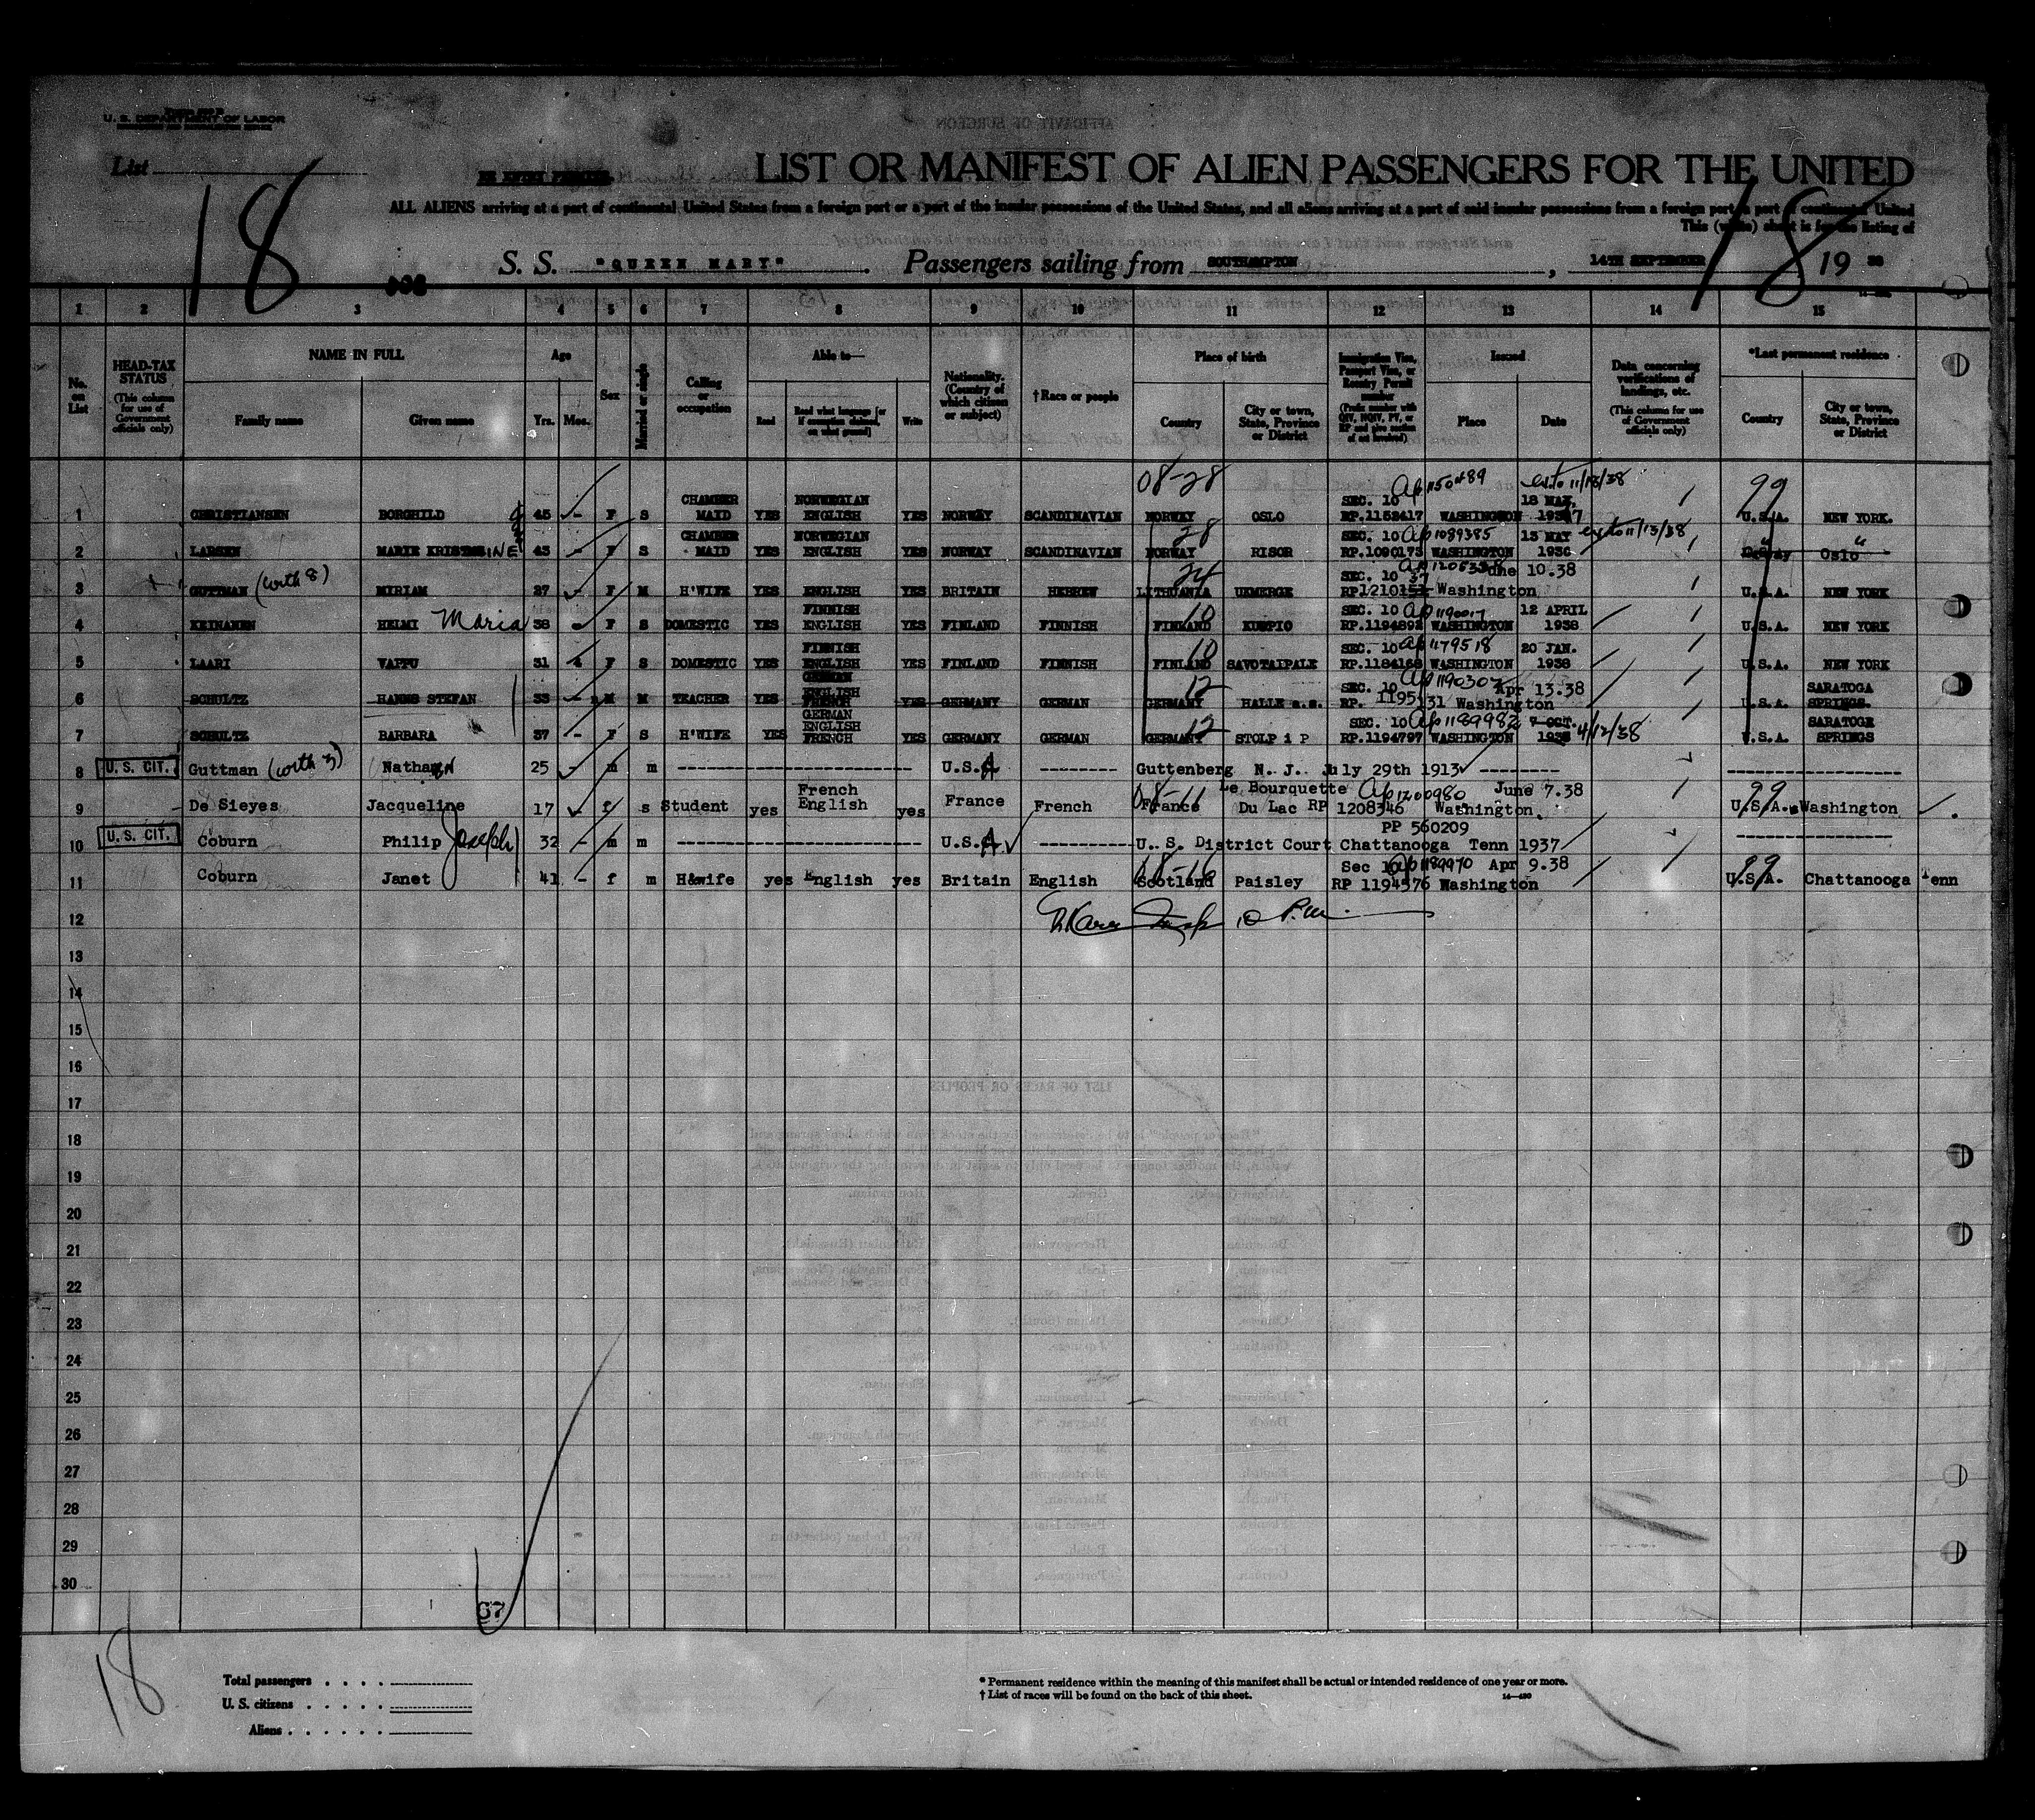 U. S. DEPARTMENT OF LABOR
List
18
LIST OR MANIFEST OF ALIEN PASSENGERS FOR THE UNITED
18
ALL ALIENS arriving at a port of continental United States from a foreign port or a port of the insular possessions of the United States, and all aliens arriving at a port of said insular possessions from a foreign port, a port of continental United
This (white) sheet is for the listing of
S. S. "QUEEN MARY". Passengers sailing from SOUTHAMPTON, 14TH SEPTEMBER 19 38
1 2 3 4 5 6 7 8 9 10 11 12 13 14 15
No. on List
HEAD-TAX STATUS (This column for use of Government officials only)
NAME IN FULL Family name Given name
Age Yrs. Mos.
Sex
Married or single
Calling or occupation
Able to— Read Read what language [or if exemption claimed, on what ground] Write
Nationality. (Country of which citizen or subject)
†Race or people
Place of birth Country City or town, State, Province or District
Immigration Visa, Passport Visa, or Reentry Permit number (Prefix number with QIV, NQIV, PV, or RP and give section of act involved)
Issued Place Date
Data concerning verifications of landings, etc. (This column for use of Government officials only)
*Last permanent residence Country City or town, State, Province or District
1 CHRISTIANSEN BORGHILD 45 - F S CHAMBER MAID YES NORWEGIAN ENGLISH YES NORWAY SCANDINAVIAN 08-28 NORWAY OSLO SEC. 10 Ap 1150489 RP.1152417 WASHINGTON 18 MAY. 1937 ext to 11/18/38 99 U.S.A. NEW YORK.
2 LARSEN MARIE KRISTINE 43 - F S CHAMBER MAID YES NORWEGIAN ENGLISH YES NORWAY SCANDINAVIAN 28 NORWAY RISOR SEC. 10 Ap 1089385 RP.1090173 WASHINGTON 13 MAY 1936 ext to 11/13/38 " Norway Oslo "
3 GUTTMAN (with 8) MIRIAM 27 F M H'WIFE YES ENGLISH YES BRITAIN HEBREW 24 LITHUANIA UKMERGE SEC. 10 RP1210151 Washington June 10.38 U.S.A. NEW YORK
4 KEINANEN HELMI Maria 38 - F S DOMESTIC YES FINNISH ENGLISH YES FINLAND FINNISH 10 FINLAND KUOPIO SEC. 10 Ap 1190017 RP.1194892 WASHINGTON 12 APRIL 1938 U.S.A. NEW YORK
5 LAARI VAPPU 31 4 F S DOMESTIC YES FINNISH ENGLISH YES FINLAND FINNISH 10 FINLAND SAVOTAIPALE SEC. 10 Ap 1179518 RP.1184168 WASHINGTON 20 JAN. 1938 U.S.A. NEW YORK
6 SCHULTZ HANNS STEFAN 33 - M M TEACHER YES GERMAN ENGLISH FRENCH YES GERMANY GERMAN 12 GERMANY HALLE a.s. SEC. 10 Ap 1190307 RP. 1195131 Washington Apr 13.38 U.S.A. SARATOGA SPRINGS.
7 SCHULTZ BARBARA 37 - F S H'WIFE YES GERMAN ENGLISH FRENCH YES GERMANY GERMAN 12 GERMANY STOLP i P SEC. 10 Ap 1189982 RP.1194797 WASHINGTON 7 OCT. 1938 4/12/38 U.S.A. SARATOGA SPRINGS
8 U. S. CIT. Guttman (with 3) Nathan 25 m m U.S.A Guttenberg N. J. July 29th 1913
9 De Sieyes Jacqueline 17 f s Student yes French English yes France French 08-11 France Le Bourquette Du Lac Ap 1200980 RP 1208346 Washington. June 7.38 99 U.S.A. Washington
10 U. S. CIT. Coburn Philip Joseph 32 - m m U.S.A U. S. District Court Chattanooga Tenn 1937 PP 560209
11 Coburn Janet 41 - f m H&wife yes English yes Britain English 08-16 Scotland Paisley Sec 10 Ap 1189970 RP 1194576 Washington Apr 9.38 99 U.S.A. Chattanooga Tenn
12 10 P.m.
13
14
15
16
17
18
19
20
21
22
23
24
25
26
27
28
29
30
67
18
Total passengers
U. S. citizens
Aliens
* Permanent residence within the meaning of this manifest shall be actual or intended residence of one year or more.
† List of races will be found on the back of this sheet.
14—480